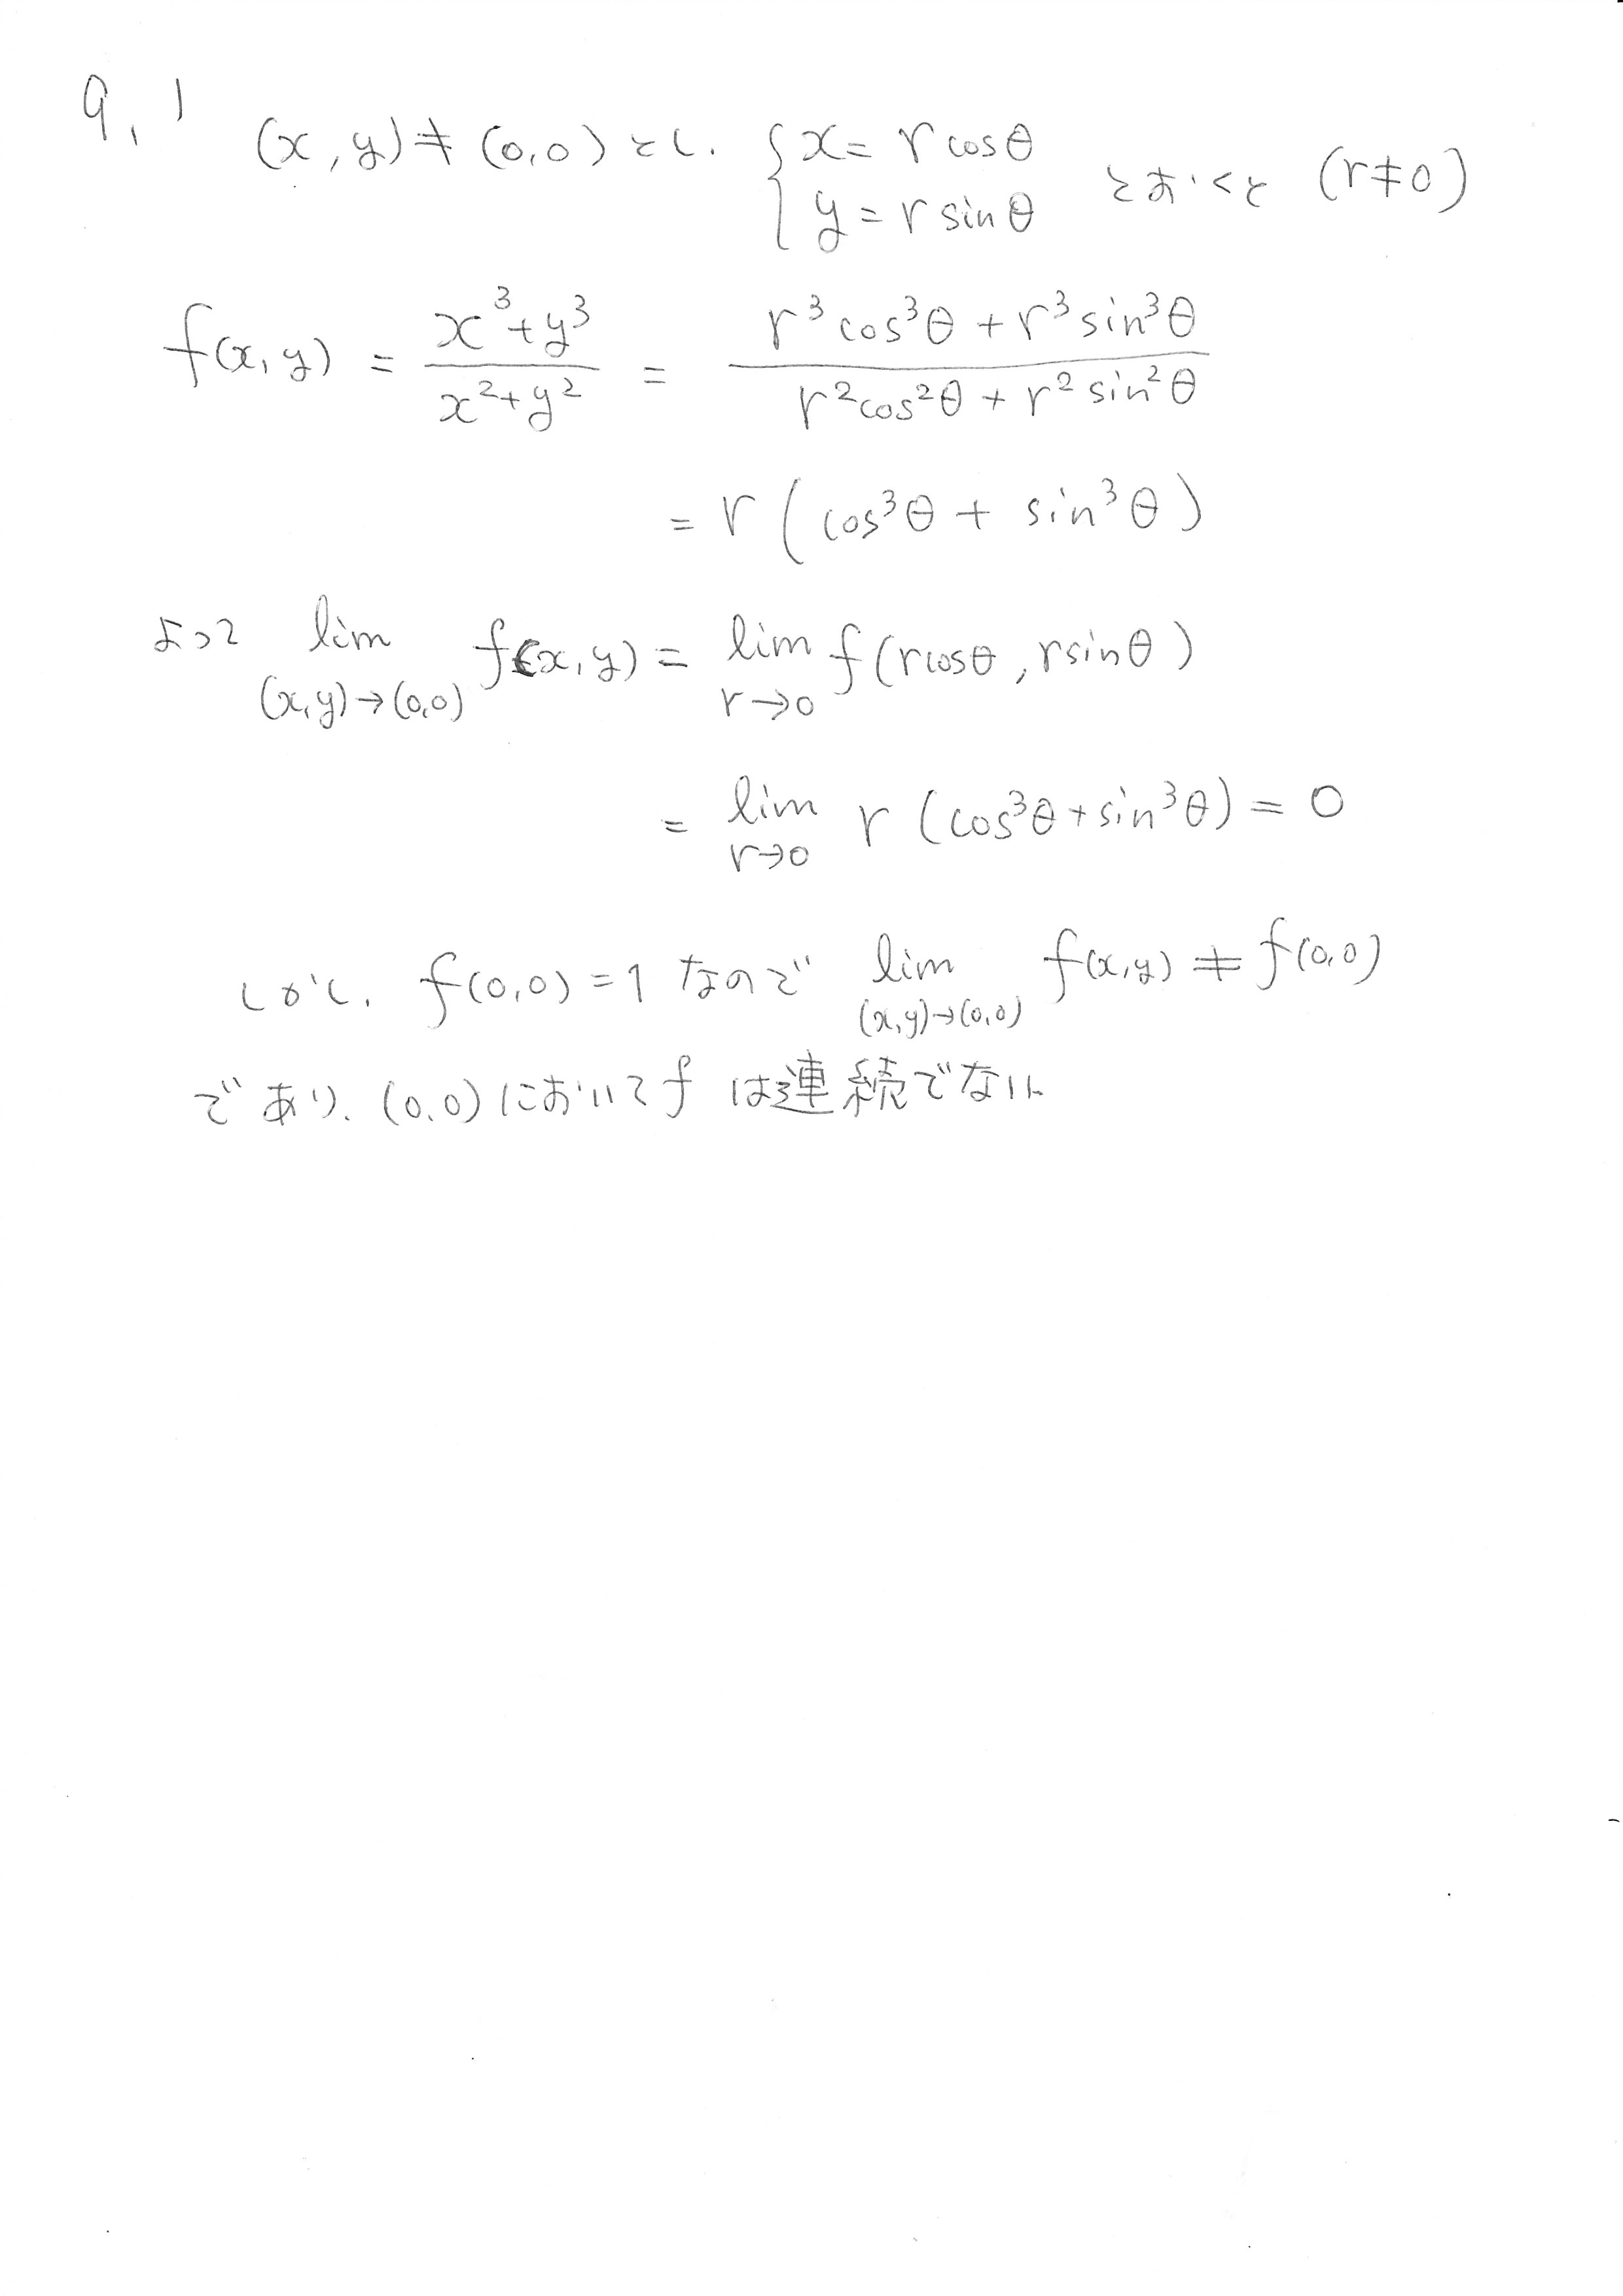 9.1
(x, y) ≠ (0,0) とし. { x = r cosθ, y = r sinθ とおくと (r≠0)
f(x, y) = (x³+y³)/(x²+y²) = (r³cos³θ + r³sin³θ)/(r²cos²θ + r²sin²θ)
= r (cos³θ + sin³θ)
よって lim_{(x,y)→(0,0)} f(x, y) = lim_{r→0} f(rcosθ, rsinθ)
= lim_{r→0} r (cos³θ + sin³θ) = 0
しかし. f(0,0) = 1 なので lim_{(x,y)→(0,0)} f(x,y) ≠ f(0,0)
であり. (0,0) において f は連続でない